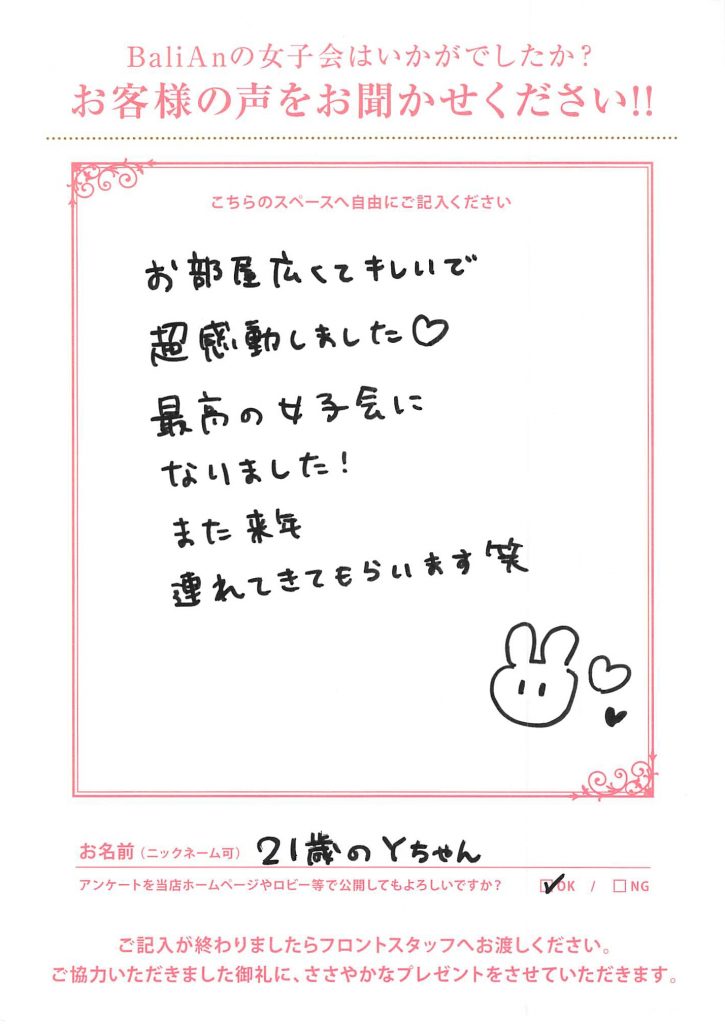 BaliAnの女子会はいかがでしたか?
お客様の声をお聞かせください!!
こちらのスペースへ自由にご記入ください
お部屋広くてキレイで
超感動しました♡
最高の女子会に
なりました!
また来年
連れてきてもらいます笑
お名前(ニックネーム可) 21歳のYちゃん
アンケートを当店ホームページやロビー等で公開してもよろしいですか? ☑OK / □NG
ご記入が終わりましたらフロントスタッフへお渡しください。
ご協力いただきました御礼に、ささやかなプレゼントをさせていただきます。